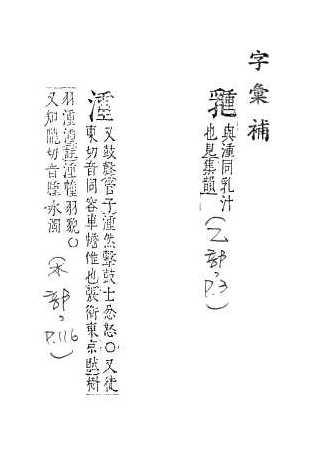 字彙補
與湩同乳汁
也見集韻
(乙部, P.3)
湩 又鼓聲管子湩然擊鼓士忿怒○又徒
東切音同容車幨帷也張衡東京賦樹
羽湩湩註湩幢羽貌○
又知隴切音水濁
(水部, P.116)